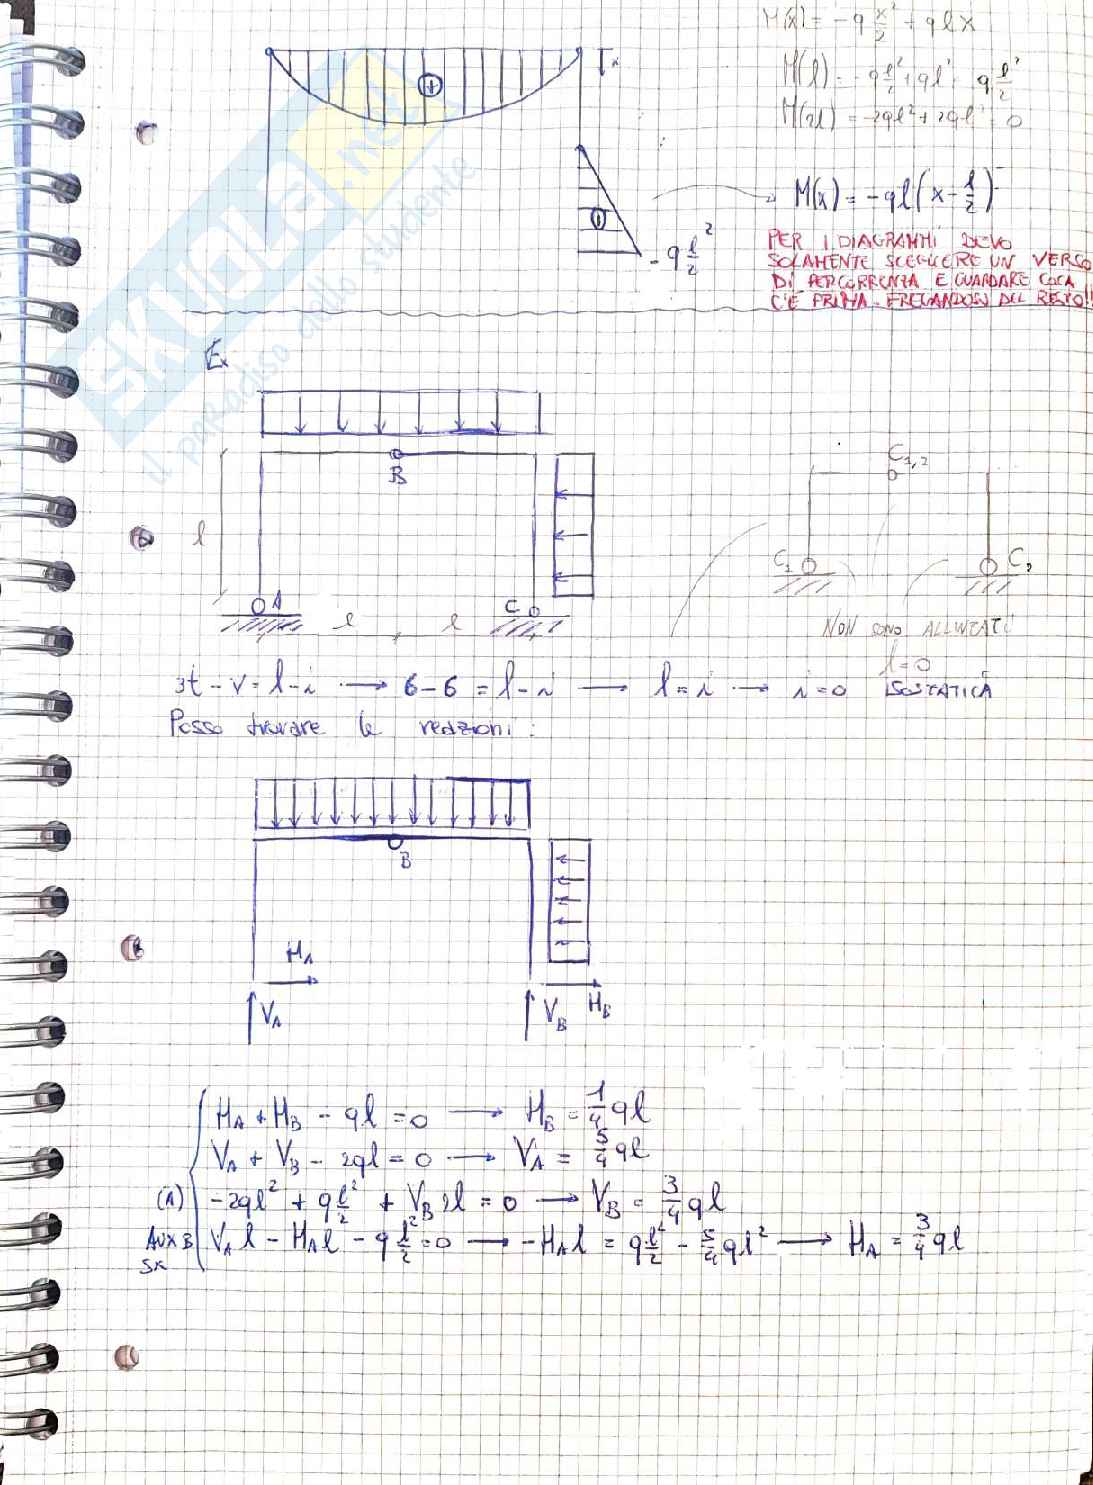 M(x) = -q x²/2 + qlx
M(l) = -q l²/2 + ql² = q l²/2
M(2l) = -2ql² + 2ql² = 0
x
M(x) = -ql(x - l/2)
- q l²/2
PER I DIAGRAMMI DEVO
SOLAMENTE SCEGLIERE UN VERSO
DI PERCORRENZA E GUARDARE COSA
C'È PRIMA FREGANDOSI DEL RESTO!!
SKUOLA.net
il paradiso dello studente
Ex
B
l
A
C
l l
C1,2
C1
C2
NON SONO ALLINEATI
l=0
3t - v = l - i → 6 - 6 = l - i → l = i → i = 0 ISOSTATICA
Posso trovare le reazioni:
B
HA
VA
VB HB
HA + HB - ql = 0 → HB = 1/4 ql
VA + VB - 2ql = 0 → VA = 5/4 ql
(A) -2ql² + q l²/2 + VB 2l = 0 → VB = 3/4 ql
AUX B VA l - HA l - q l²/2 = 0 → -HA l = q l²/2 - 5/4 ql² → HA = 3/4 ql
SX